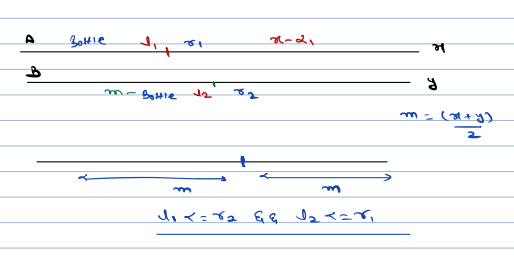 A Bottle l1 r1 x-l1 x
B m-Bottle l2 r2 y
m = (x+y)
2
m m
l1 <= r2 && l2 <= r1